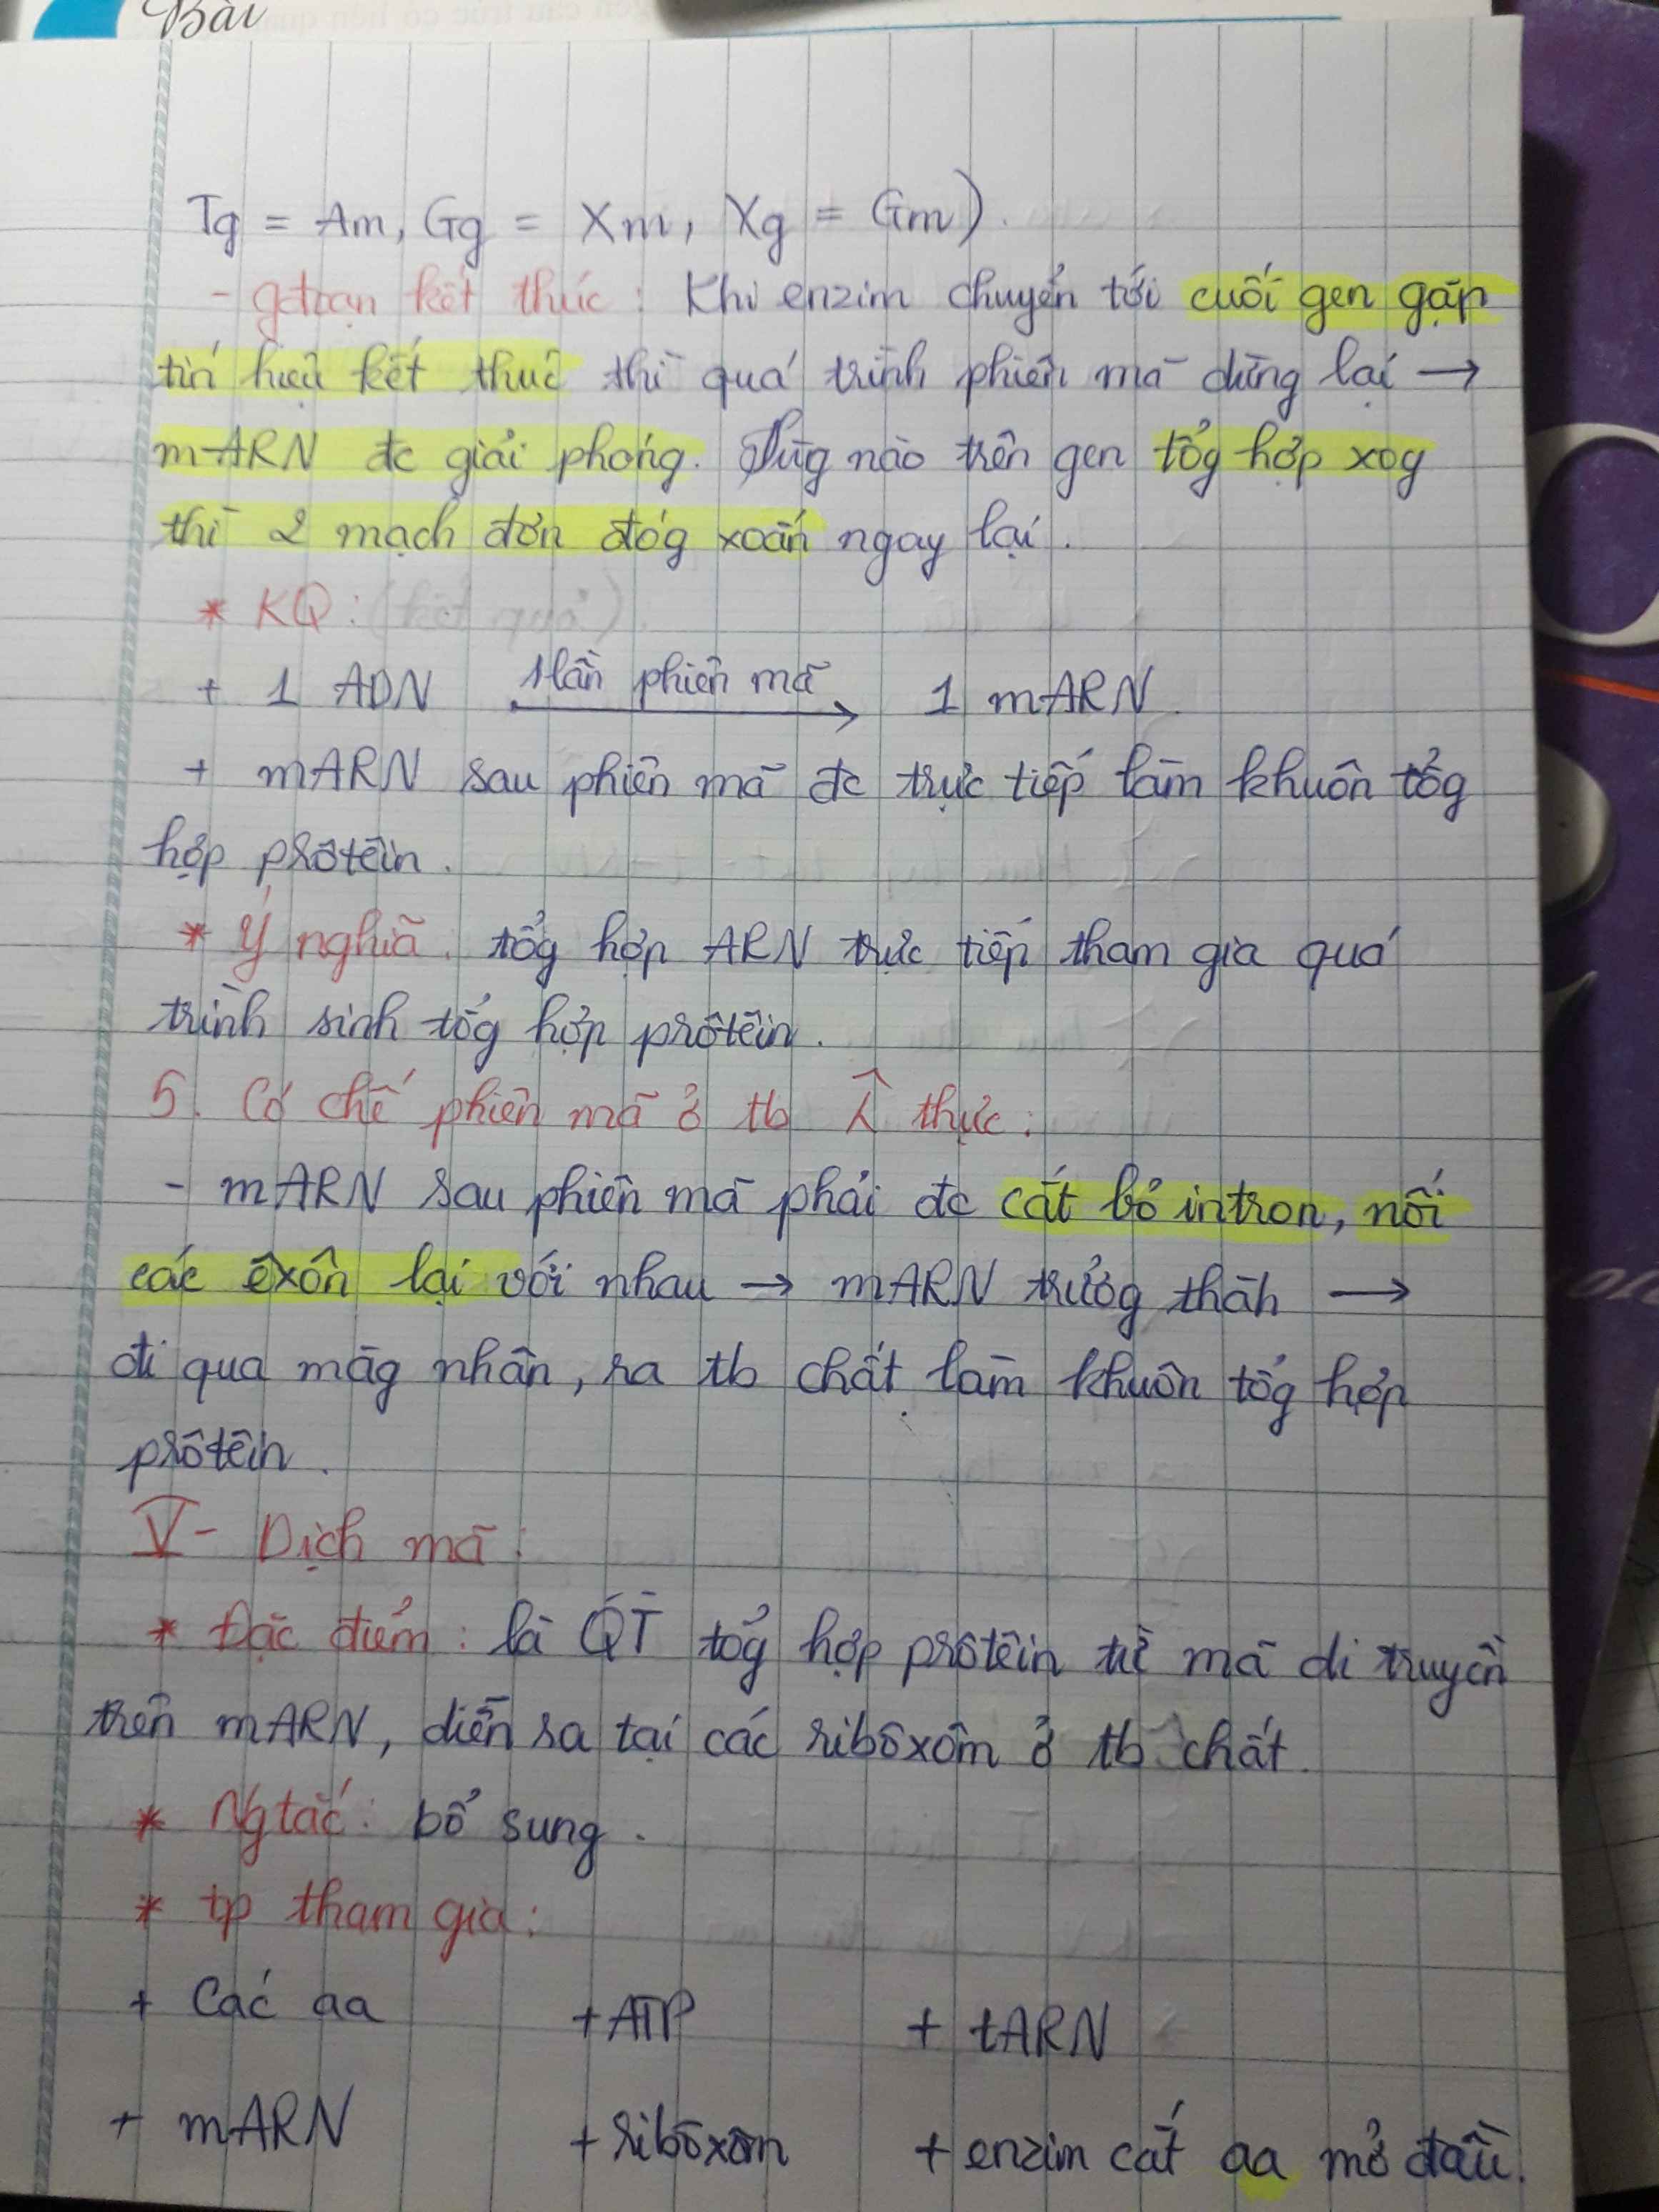 Bài
Tg = Am, Gg = Xm, Xg = Gm).
- gđoạn kết thúc: Khi enzim chuyển tới cuối gen gặp
tín hiệu kết thúc thì quá trình phiên mã dừng lại →
mARN đc giải phóng. Vùg nào trên gen tổg hợp xog
thì 2 mạch đơn đóg xoắn ngay lại.
* KQ: (kết quả).
+ 1 ADN 1 lần phiên mã → 1 mARN.
+ mARN sau phiên mã đc trực tiếp làm khuôn tổg
hợp prôtêin.
* Ý nghĩa: tổg hợp ARN trực tiếp tham gia quá
trình sinh tổg hợp prôtêin.
5. Cơ chế phiên mã ở tb  thực:
- mARN sau phiên mã phải đc cắt bỏ intron, nối
các êxôn lại với nhau → mARN trưởg thàh →
đi qua màg nhân, ra tb chất làm khuôn tổg hợp
prôtêin.
V- Dịch mã:
* Đặc điểm: là QT tổg hợp prôtêin từ mã di truyền
trên mARN, diễn ra tại các ribôxôm ở tb chất.
* Ngtắc: bổ sung.
* tp tham gia:
+ Các aa +ATP + tARN
+ mARN +ribôxôm + enzim cắt aa mở đầu.